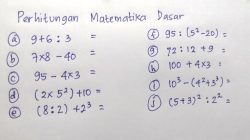 Perhitungan Matematika Dasar
ⓐ 9+6 : 3 =
ⓑ 7×8 - 40 =
ⓒ 95 - 4×3 =
ⓓ (2 × 5²) + 10 =
ⓔ (8 : 2) + 2³ =
ⓕ 95 : (5² - 20) =
ⓖ 72 : 12 + 9 =
ⓗ 100 + 4×3 =
ⓘ 10³ - (4² + 3²) =
ⓙ (5+3)² : 2² =